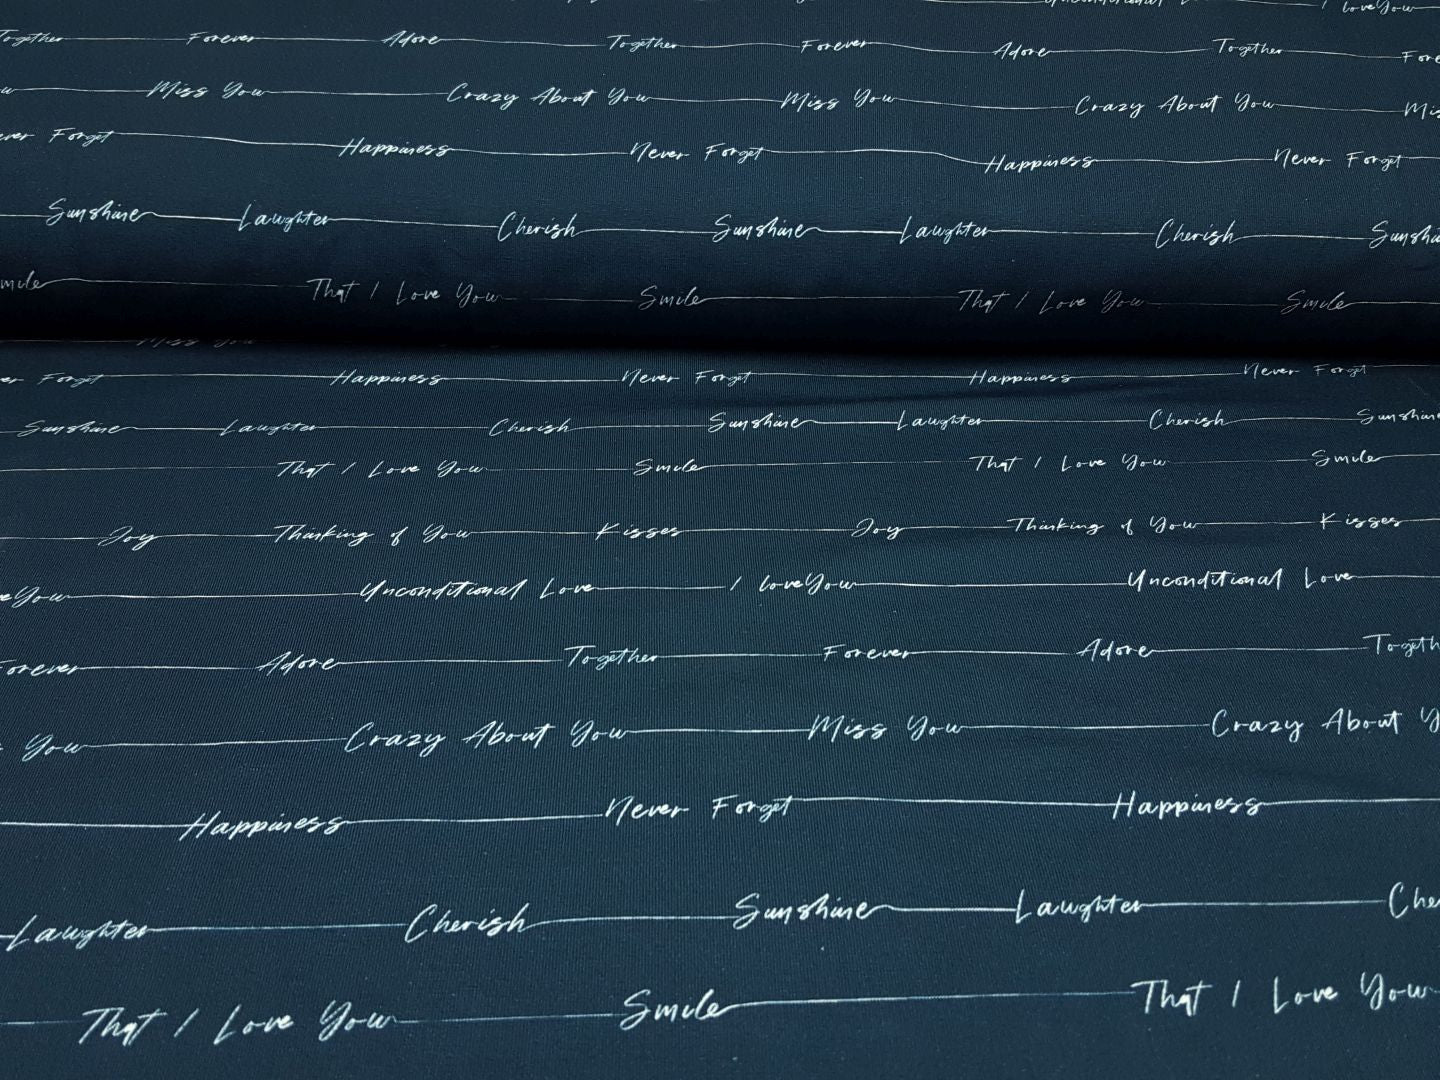 Unconditional I loveYou
Together Forever Adore Together Forever Adore Together Fore
Miss You Crazy About You Miss You Crazy About You Mis
ver Forget Happiness Never Forget Happiness Never Forget
Sunshine Laughter Cherish Sunshine Laughter Cherish Sunshi
mile That I Love You Smile That I Love You Smile
Miss You
er Forget Happiness Never Forget Happiness Never Forget
Sunshine Laughter Cherish Sunshine Laughter Cherish Sunshine
That I Love You Smile That I Love You Smile
Joy Thinking of You Kisses Joy Thinking of You Kisses
eYou Unconditional Love I loveYou Unconditional Love
Forever Adore Together Forever Adore Togeth
You Crazy About You Miss You Crazy About Y
Happiness Never Forget Happiness
Laughter Cherish Sunshine Laughter Che
That I Love You Smile That I Love You